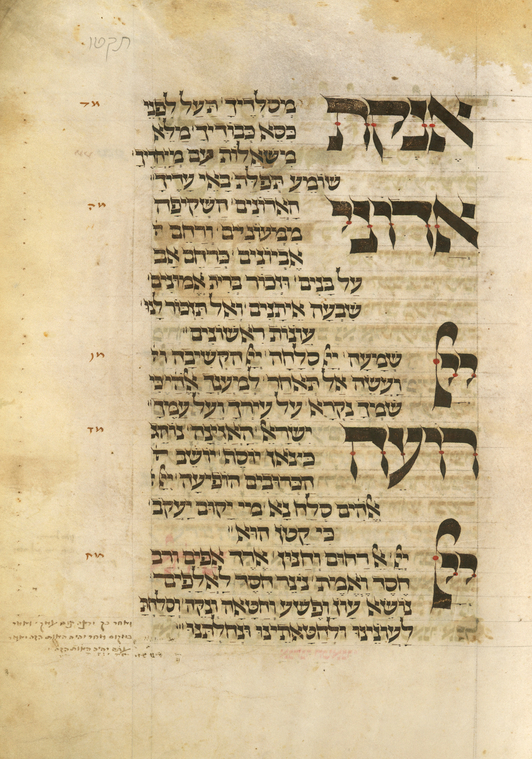 תקטו
מד
אנקת מסלדיך תעל לפני
כסא כבודיך מלא
משאלות עם מיחדיך
שומע תפלת באי עדיך
מה
אדוני האדונים השקיפה
ממעונים ורחם ה
אביונים כרחם אב
על בנים וזכור ברית אמונים
שבעה איתנים ואל תזכור לנו
עונות ראשונים
מו
ייי שמעה ייי סלחה ייי הקשיבה וי
ועשה אל תאחר למענך
שמך נקרא על עירך ועל עמך
מז
רועה ישראל נוהג
כצאן יוסף יושב ה
הכרובים הופיעה ייי
אלהים סלח נא מי יקום יעקב
כי קטן הוא
מח
ייי אל רחום וחנון ארך אפים ורב
חסד ואמת נצר חסד לאלפים
נושא עון ופשע וחטאה ונקה וסלחת
לעונינו ולחטאתינו ונחלתנו